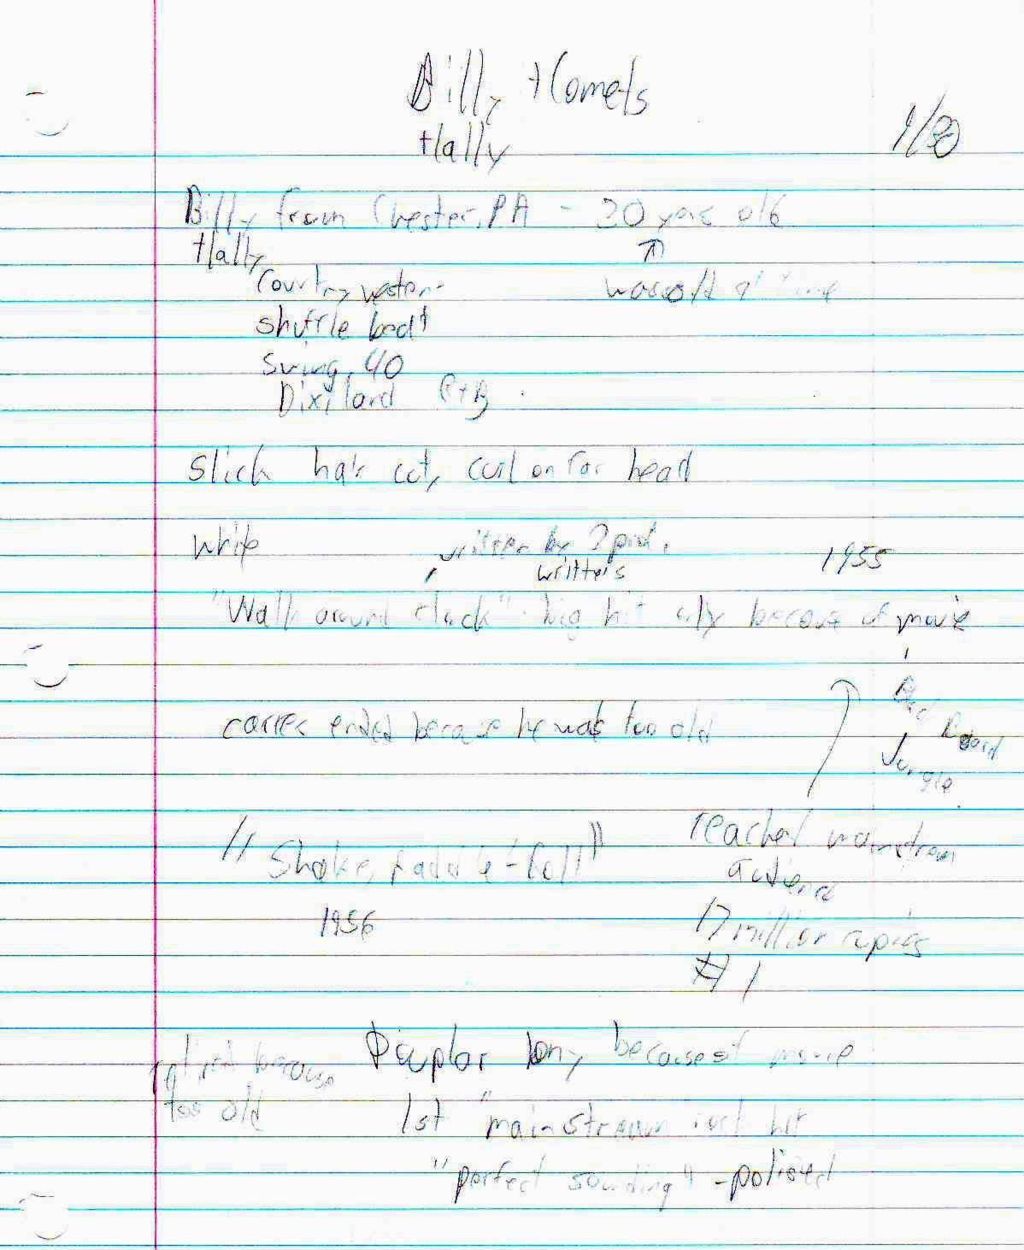 Billy + Comets
Hally
1/30
Billy from Chester, PA - 20 years old
Hally
was old at time
Country western
shuffle beat
Swing, 40
Dixiland R+B
slick hair cut, curl on for head
write
written by 2 prof.
writters
1955
"Walk around clock" - big hit only because of movie
Black Board
Jungle
career ended because he was too old
"Shake, rattle + Roll"
reached mainstream
audience
1956
17 million copies
#1
Pouplar only because of movie
retired because
too old
1st "mainstream rock hit
"perfect sounding" - polised